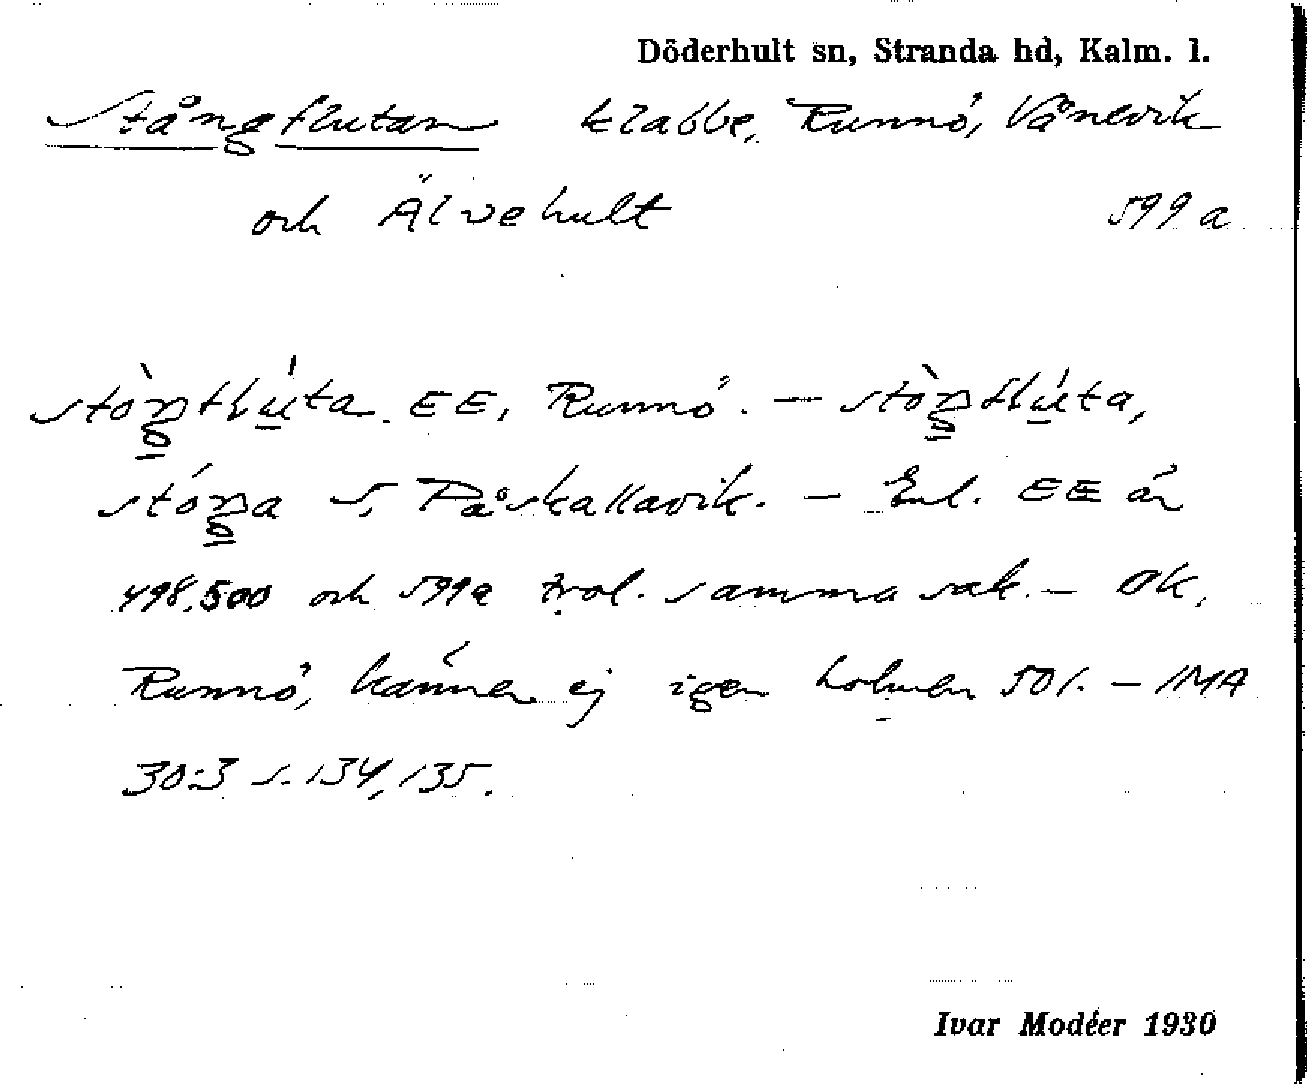 Döderhult sn, Stranda hd, Kalm. l.
Stångflutan klabbe, Runnö, Vånevik
och Älvehult 599 a
stòŋflúta EE, Runnö. — stòŋflúta,
stóŋa S, Påskallavik. — Enl. EE är
498, 500 och 599a trol. samma sak. — OK,
Runnö, känner ej igen holmen 501. — IMA
30:3 s. 134, 135.
Ivar Modéer 1930